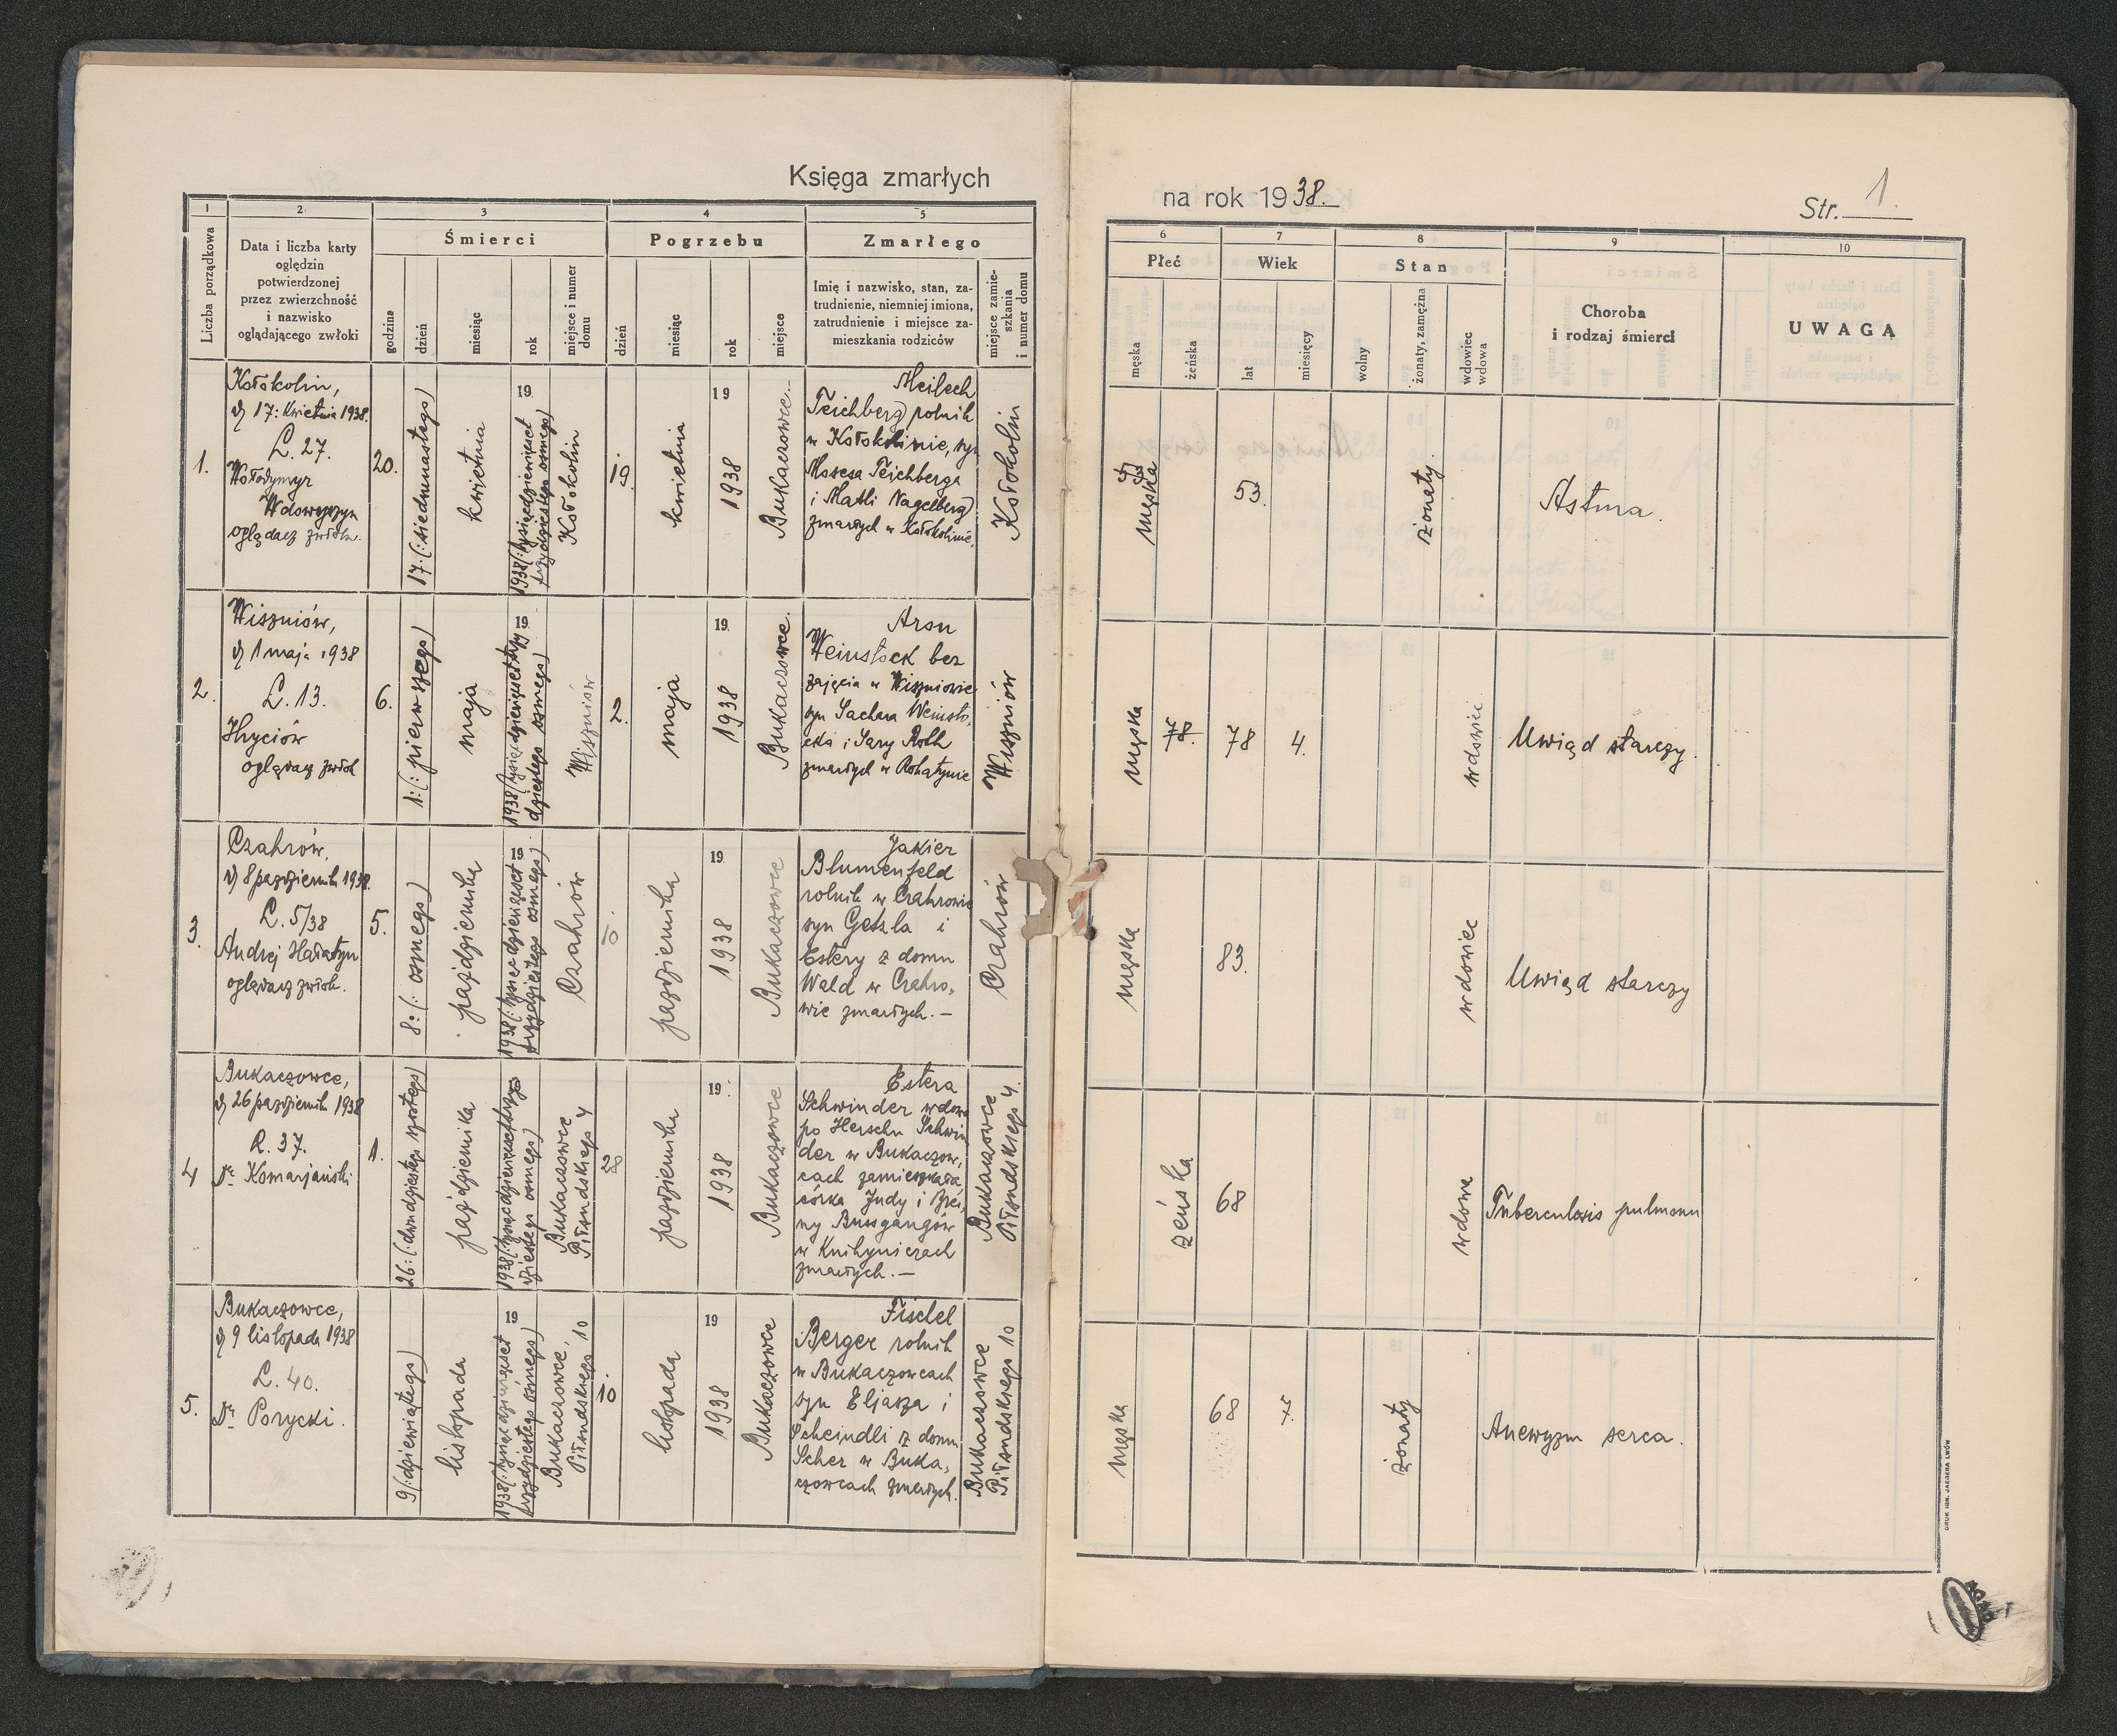 Księga zmarłych
na rok 1938.
Str. 1.
1
2
3
4
5
Liczba porządkowa
Data i liczba karty
oględzin
potwierdzonej
przez zwierzchność
i nazwisko
oglądającego zwłoki
Śmierci
godzina
dzień
miesiąc
rok
miejsce i numer
domu
Pogrzebu
dzień
miesiąc
rok
miejsce
Zmarłego
Imię i nazwisko, stan, za-
trudnienie, niemniej imiona,
zatrudnienie i miejsce za-
mieszkania rodziców
miejsce zamie-
szkania
i numer domu
6
7
8
9
10
Płeć
męska
żeńska
Wiek
lat
miesięcy
Stan
wolny
żonaty, zamężna
wdowiec
wdowa
Choroba
i rodzaj śmierci
UWAGA
1.
Kołokolin,
d 17: Kwietnia 1938.
L. 27.
Wołodymyr
oglądacz zwłok.
20.
17 (: siedmnastego)
kwietnia
19
1938 (: tysiącdziewięćset
trzydziestego ósmego)
Kołokolin
19.
kwietnia
19
1938
Bukaczowce.
Meilech
Teichberg rolnik
w Kołokolinie, syn
Mosesa Teichberga
i Matli Nagelberg
zmarłych w Kołokolinie.
Kołokolin
męska
53.
żonaty.
Astma.
2.
Wiszniów,
d 1 maja 1938
L. 13.
Hryciów
oglądacz zwłok
6.
1: (: pierwszego)
maja
19
1938 (tysiącdziewięćsettrzy
dziestego ósmego)
Wiszniów
2.
maja
19
1938
Bukaczowce.
Aron
Weinstock bez
zajęcia w Wiszniowie
syn Sachara Weinsto-
cka i Sary Roth
zmarłych w Rohatynie
Wiszniów
męska
78.
78
4.
wdowiec
Uwiąd starczy.
3.
Czahrów,
d 8 październik 1938.
L. 5/38
Andrej Hałatyn
oglądacz zwłok.
5.
8: (: ósmego)
października
19
1938 (: tysiącdziewięćset
trzydziestego ósmego)
Czahrów
10
października
19
1938
Bukaczowce
Jakier
Blumenfeld
rolnik w Czahrowie
syn Getzla i
Estery z domu
Wald w Czahro-
wie zmarłych. —
Czahrów
męska
83.
wdowiec
Uwiąd starczy
4
Bukaczowce,
d 26 październik 1938
L. 37.
Dr. Komarjański
1.
26: (: dwudziestego szóstego)
października
19
1938 (: tysiącdziewięćsettrzy
dziestego ósmego)
Bukaczowce
Piłsudskiego 4
28
października
19
1938
Bukaczowce
Estera
Schwinder wdowa
po Herschu Schwin
der w Bukaczow-
cach zamieszkała
córka Judy i
ny Bussgangów
w Knihyniczach
zmarłych. —
Bukaczowce
Piłsudskiego 4.
żeńska
68
wdowa
Tuberculosis pulmonu
5.
Bukaczowce,
d 9 listopada 1938
L. 40.
Dr. Porycki.
9 (: dziewiątego)
listopada
19
1938 (: tysiącdziewięćset
trzydziestego ósmego)
Bukaczowce,
Piłsudskiego 10
10
listopada
19
1938
Bukaczowce
Fischel
Berger rolnik
w Bukaczowcach
syn Eljasza i
Scheindli z domu
Scher w Buka-
czowcach zmarłych.
Bukaczowce
Piłsudskiego 10
męska
68
żonaty
Anewyzm serca.
DRUK IGN. JAEGERA LWÓW